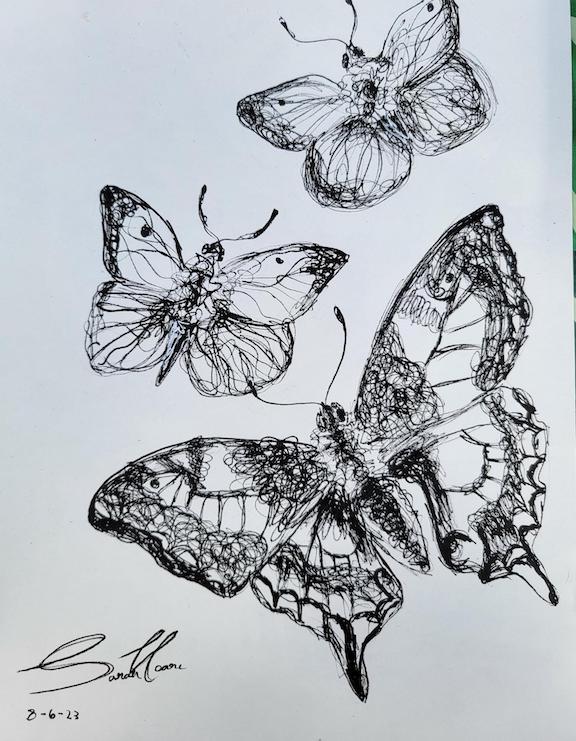 Sarah Hoare
8-6-23